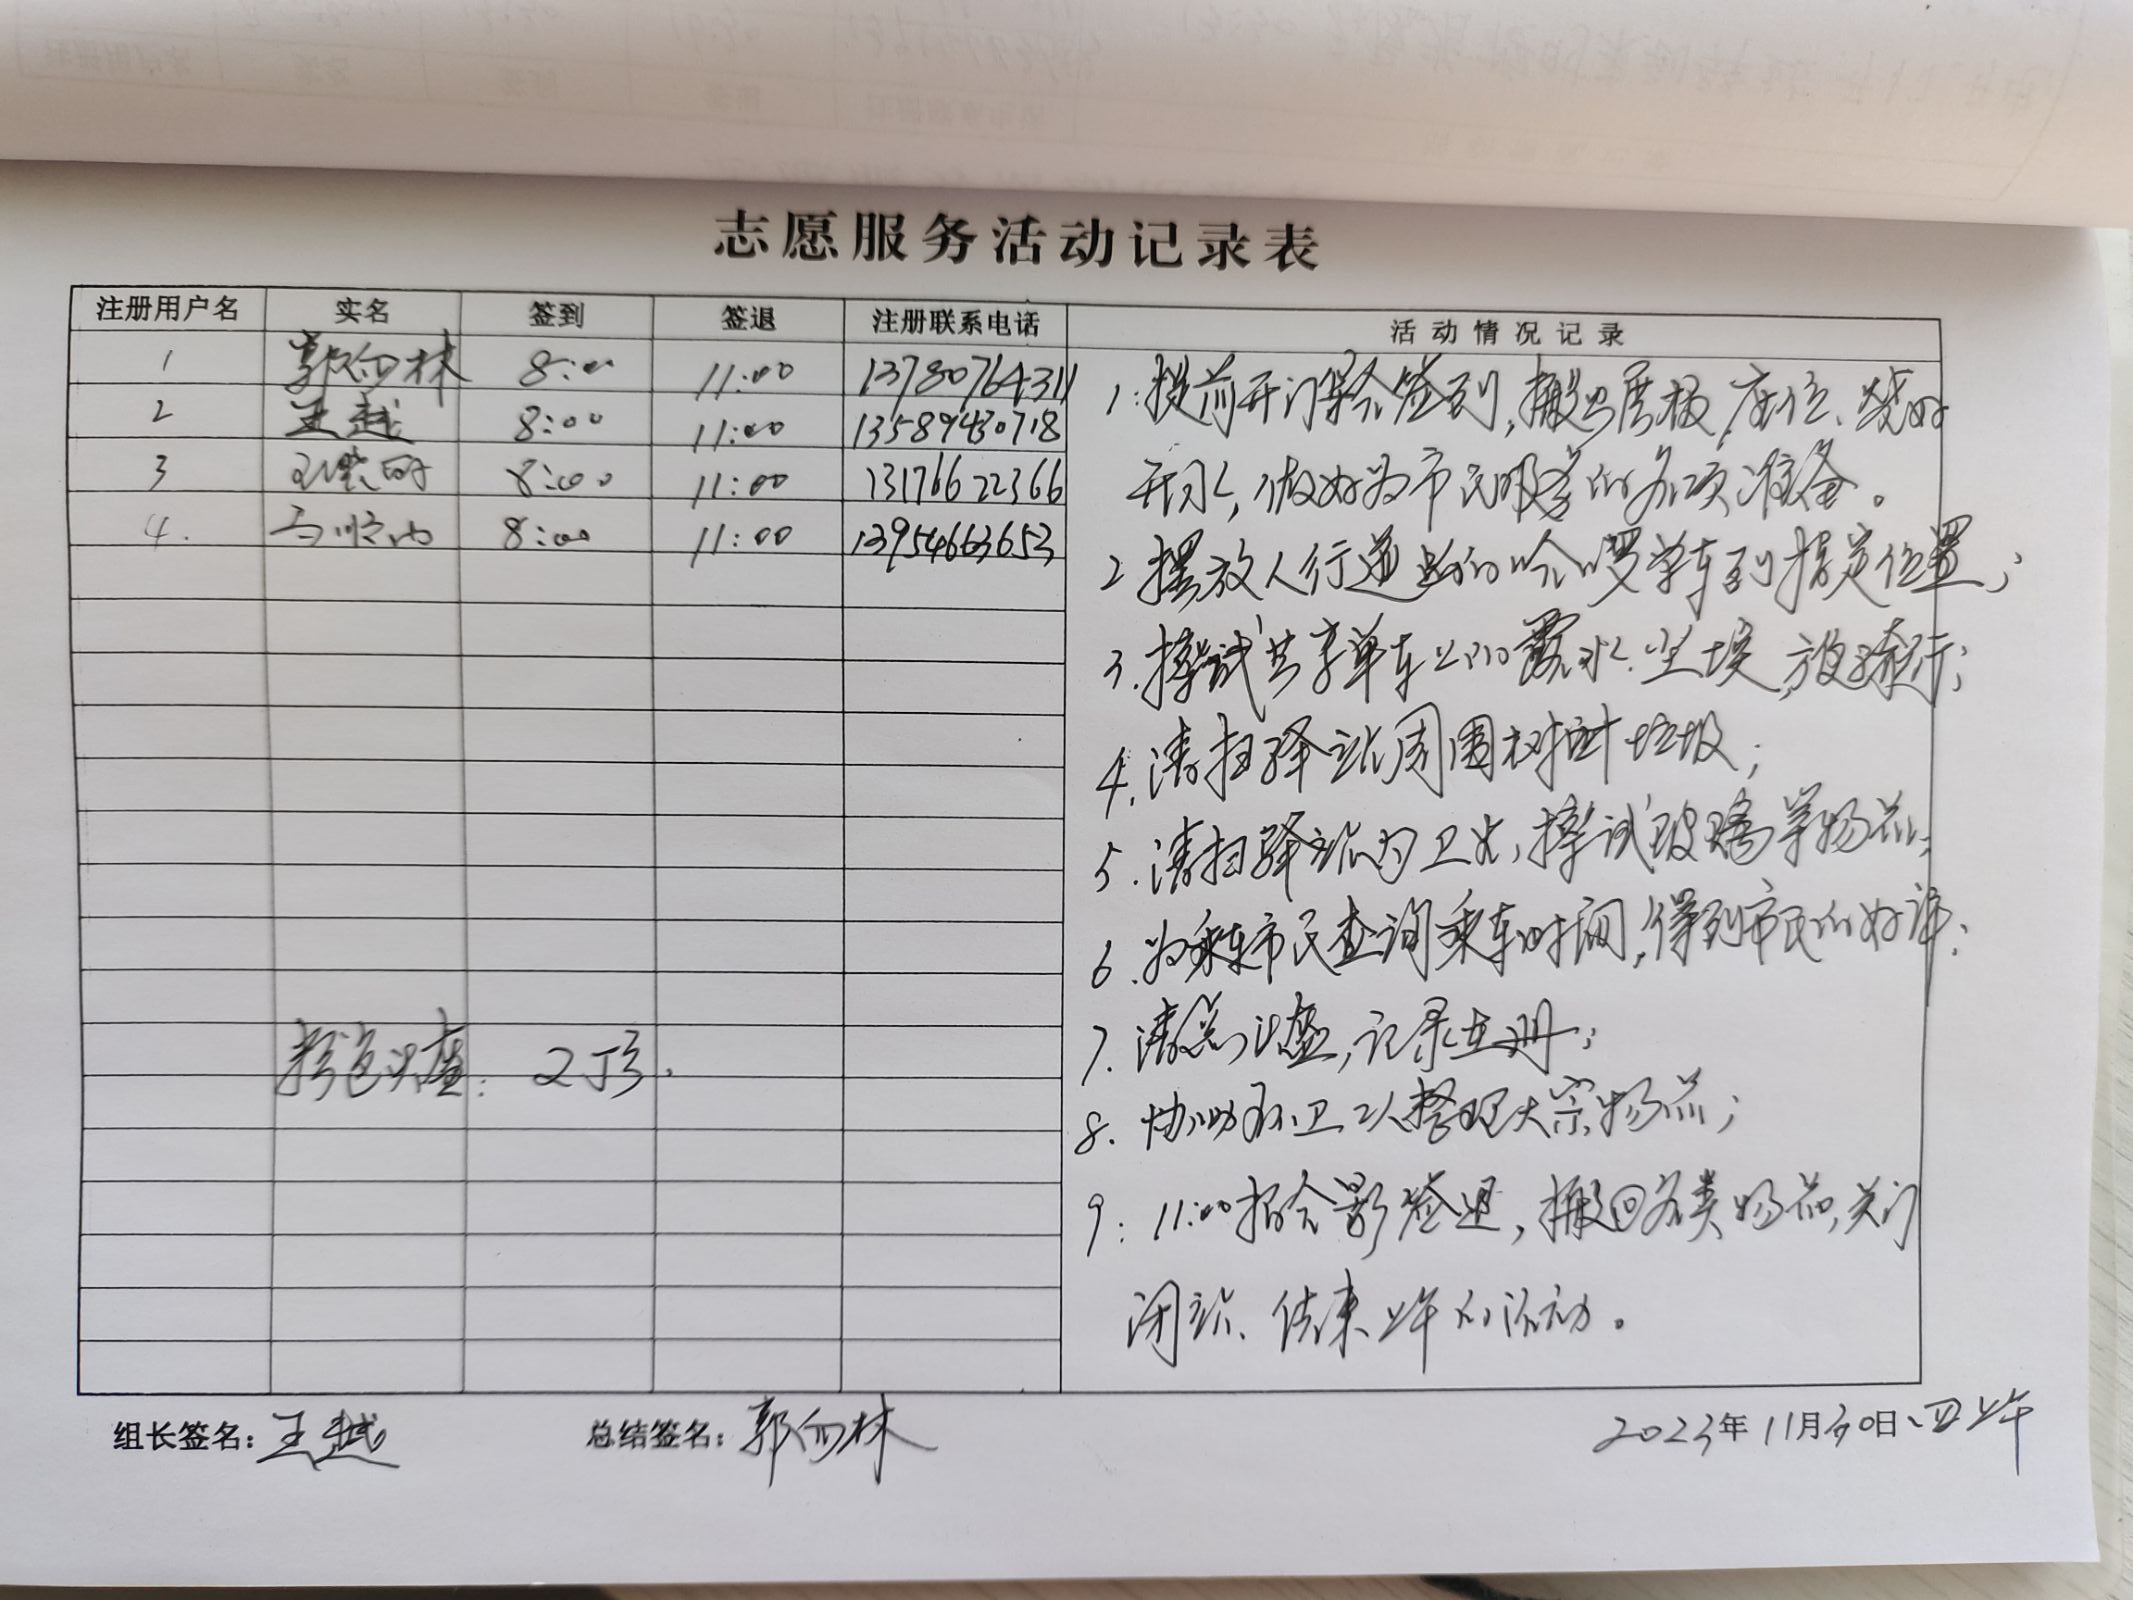 志愿服务活动记录表
注册用户名 实名 签到 签退 注册联系电话 活动情况记录
1 郭向林 8:00 11:00 13780764311
2 王越 8:00 11:00 13589430718
3 8:00 11:00 13176622366
4. 8:00 11:00 13954663653
1.提前开门 签到,搬出展板,座位、烧好
开水,做好为市民服务的各项准备。
2 摆放人行道边的哈啰单车到指定位置;
3.擦试共享单车上的露水、尘埃,方便骑行;
4.清扫驿站周围树叶垃圾;
5.清扫驿站内卫生,擦试玻璃等物品;
6.为乘车市民查询乘车时间,得到市民的好评;
7.清点头盔,记录在册;
8.协助环卫工人整理大宗物品;
9:11:00拍合影签退,搬回各类物品,关门
闭站、结束上午的活动。
粉色头盔:2顶.
组长签名:王越 总结签名:郭向林 2023年11月30日 四上午